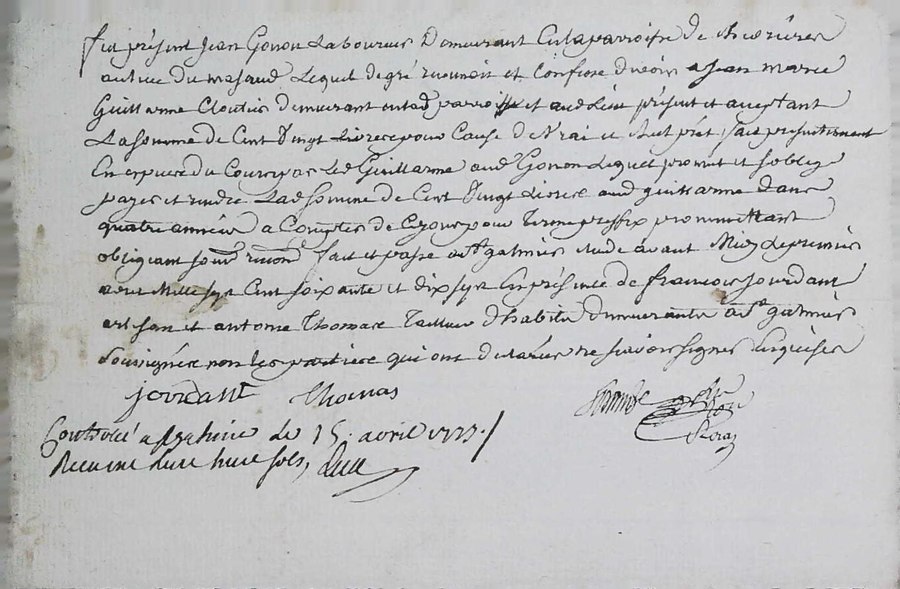 fut présent Jean Gonon Laboureur Demeurant En la parroisse de
au lieu du mazaud Lequel de gré reconnoit et Confesse devoir a Jean Marie
Guillarme Cloutier demeurant en lad parroisse et aud Lieu présent et acceptant
La somme de Cent Vingt Livres pour Cause de Vrai et prêt fait presentement
En espèces du Cours par Led Guillarme aud Gonon Lequel promet et soblige
payer et rendre Lad somme de Cent Vingt Livres aud guillarme dans
quatre années a Compter de Ce jour pour Terme prefix promettant
obligeant soum renon fait et passé a St galmier étude avant Midy Le premier
avril Mille sept Cent soixante et dix sept En présence de francois Jourdant
artisan et antoine Thomas Tailleur Dhabits demeurants a St galmier
soussignés non les parties qui ont déclaré ne savoir signer enquises
jourdant Thomas
Controlé a St galmier le 15 avril 1777
Recu une livre huit sols